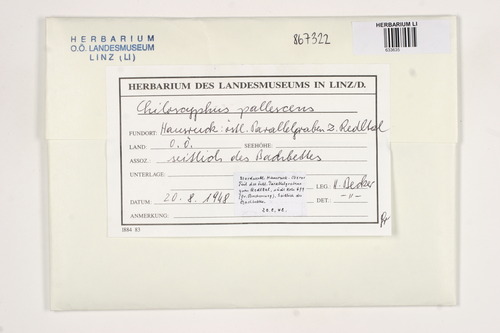 HERBARIUM
O.Ö. LANDESMUSEUM
LINZ (LI)
867322
HERBARIUM LI
HERBARIUM DES LANDESMUSEUMS IN LINZ/D.
Chiloscyphus pallescens
FUNDORT: Hausruck: östl. Parallelgraben z. Redltal
LAND: O.Ö. SEEHÖHE:
ASSOZ.: seitlich des Bachbettes
UNTERLAGE:
DATUM: 20.8.1948
LEG: H. Becker
DET: -"-
ANMERKUNG:
20.8.48.
I884 83